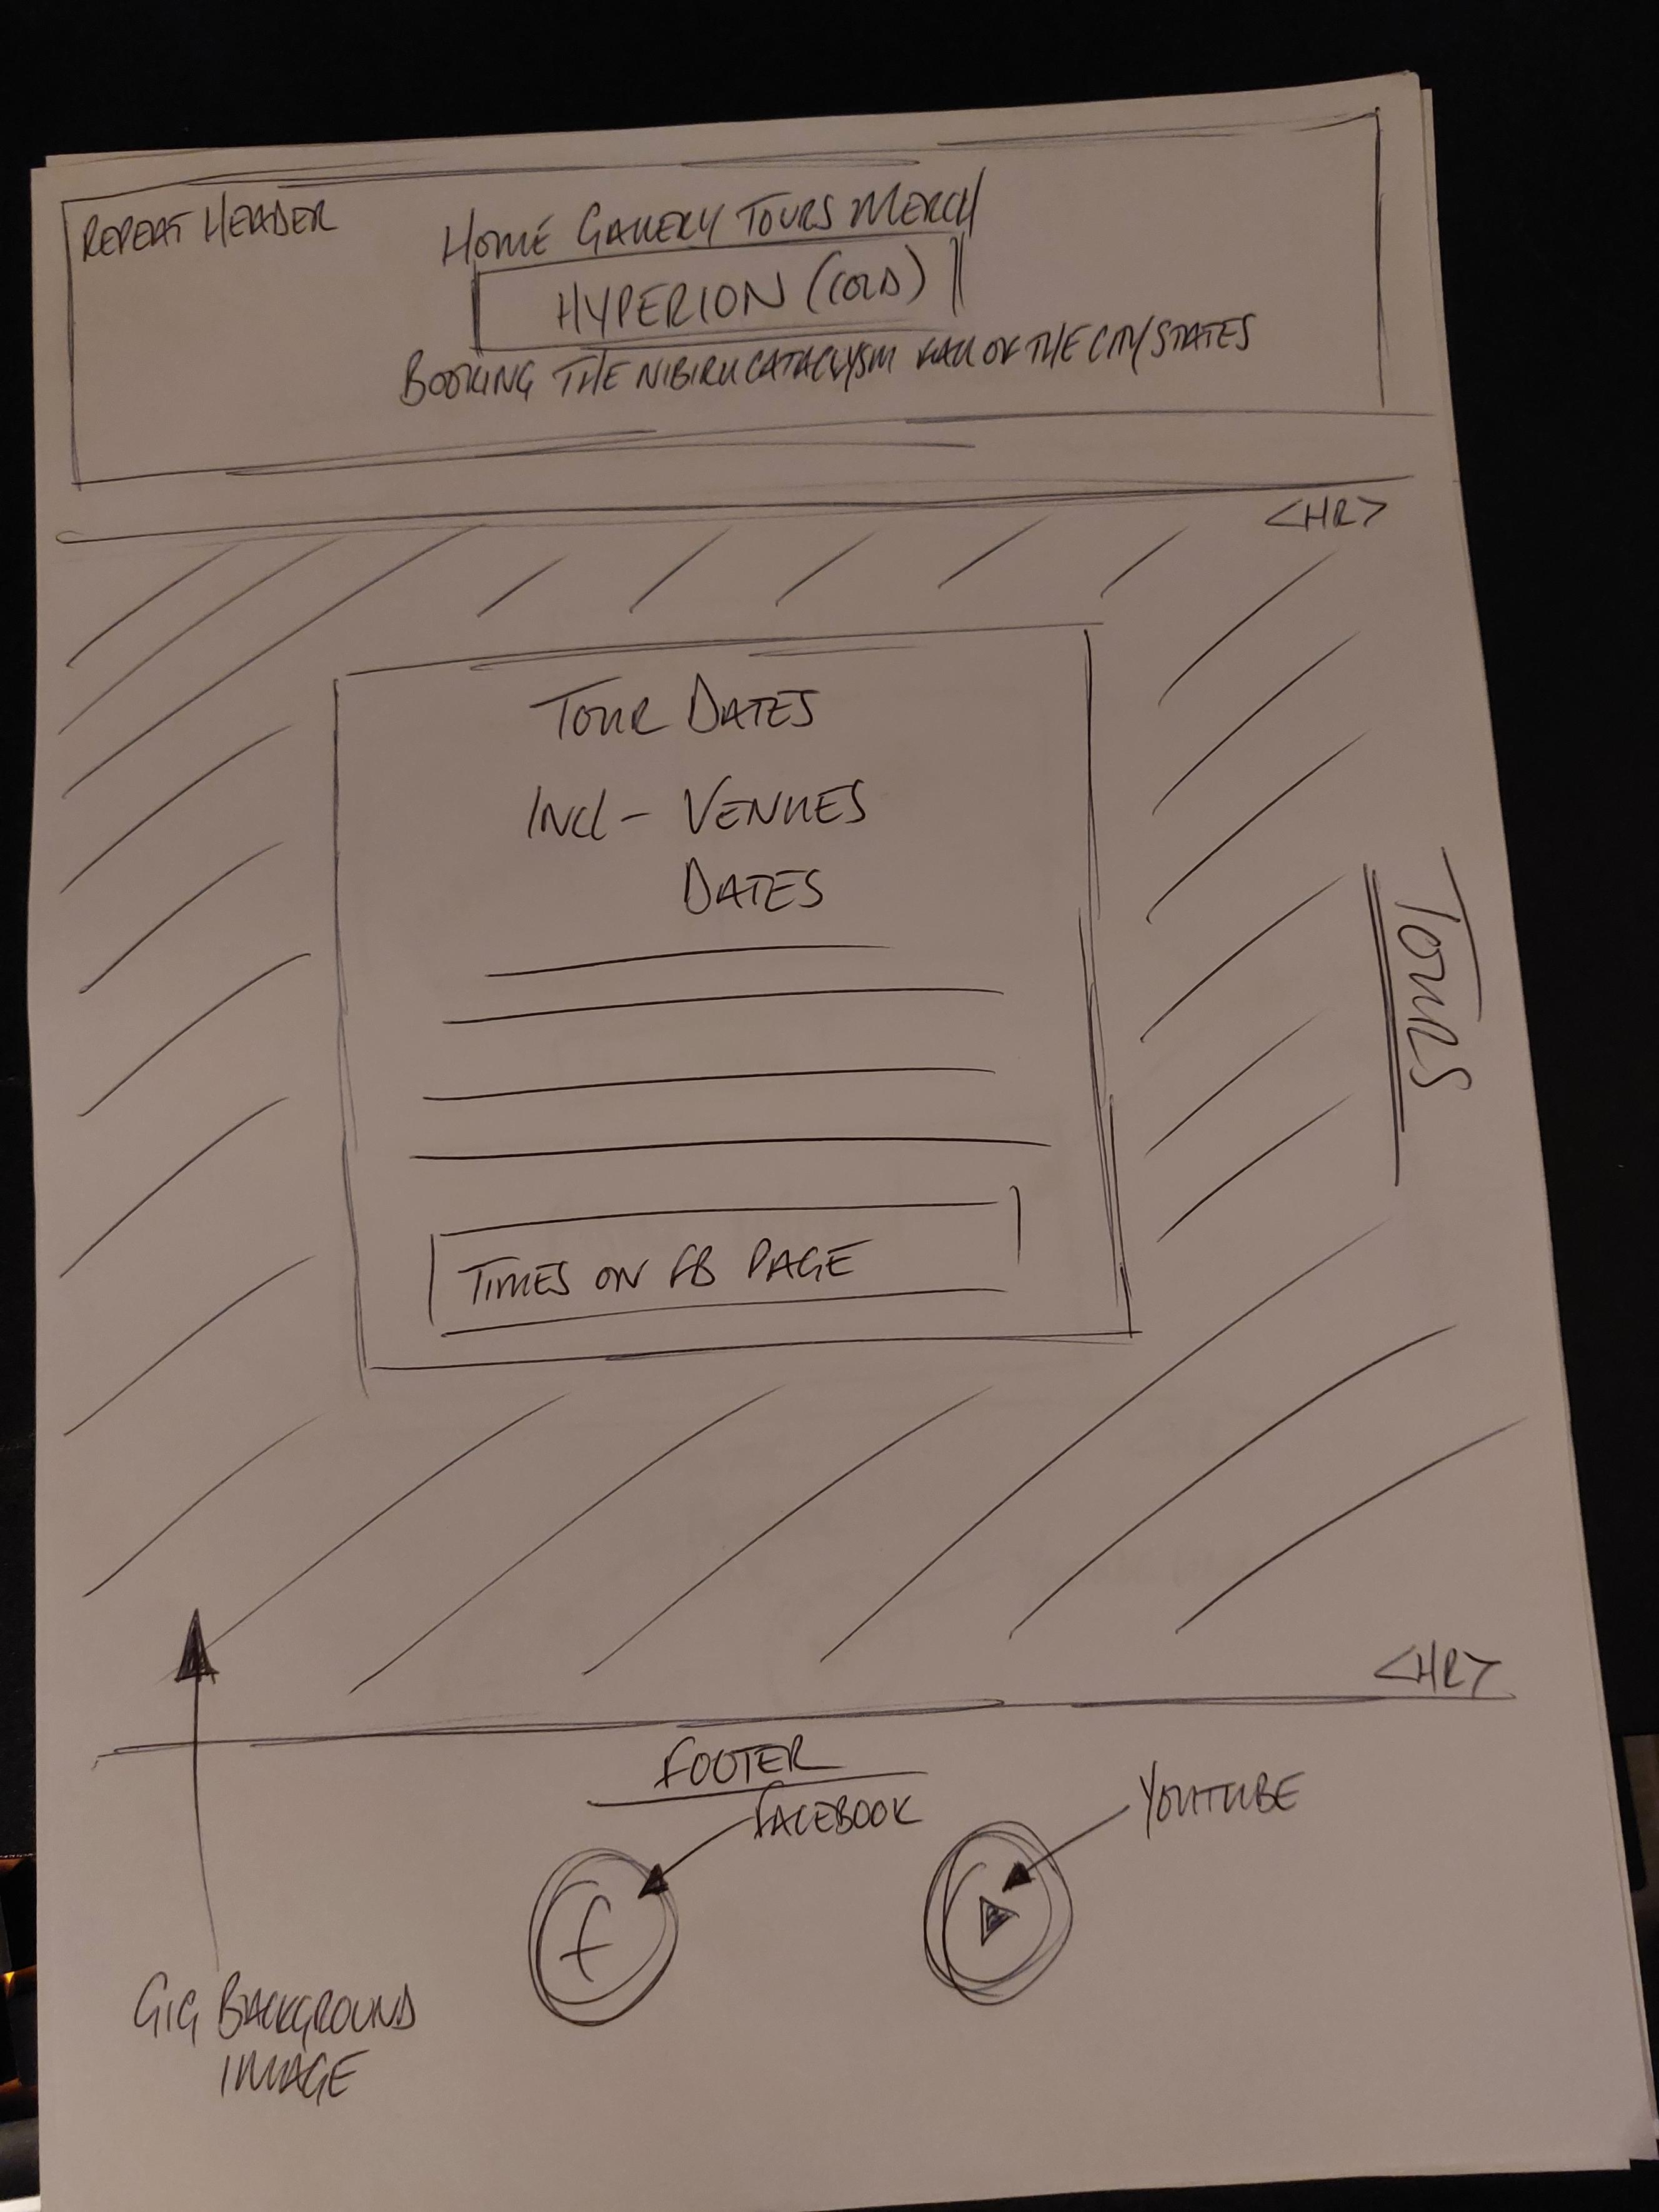 REPEAT HEADER
HOME GALLERY TOURS MERCH
HYPERION (COLD)
BOOKING THE NIBIRU CATACLYSM WAR OF THE CITY STATES
<HR>
TOUR DATES
INCL - VENUES
DATES
TOURS
TIMES ON FB PAGE
<HR>
FOOTER
FACEBOOK
YOUTUBE
f
GIG BACKGROUND
IMAGE